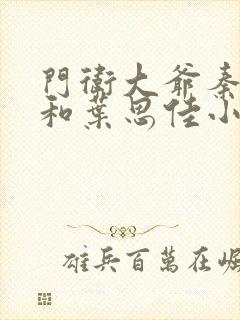 門衛大爺秦
和葉思佳小
雄兵百萬在崛